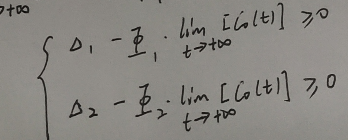 →+∞
Δ₁ - Φ₁ · lim [C₀(t)] ≥ 0
t→+∞
Δ₂ - Φ₂ · lim [C₀(t)] ≥ 0
t→+∞